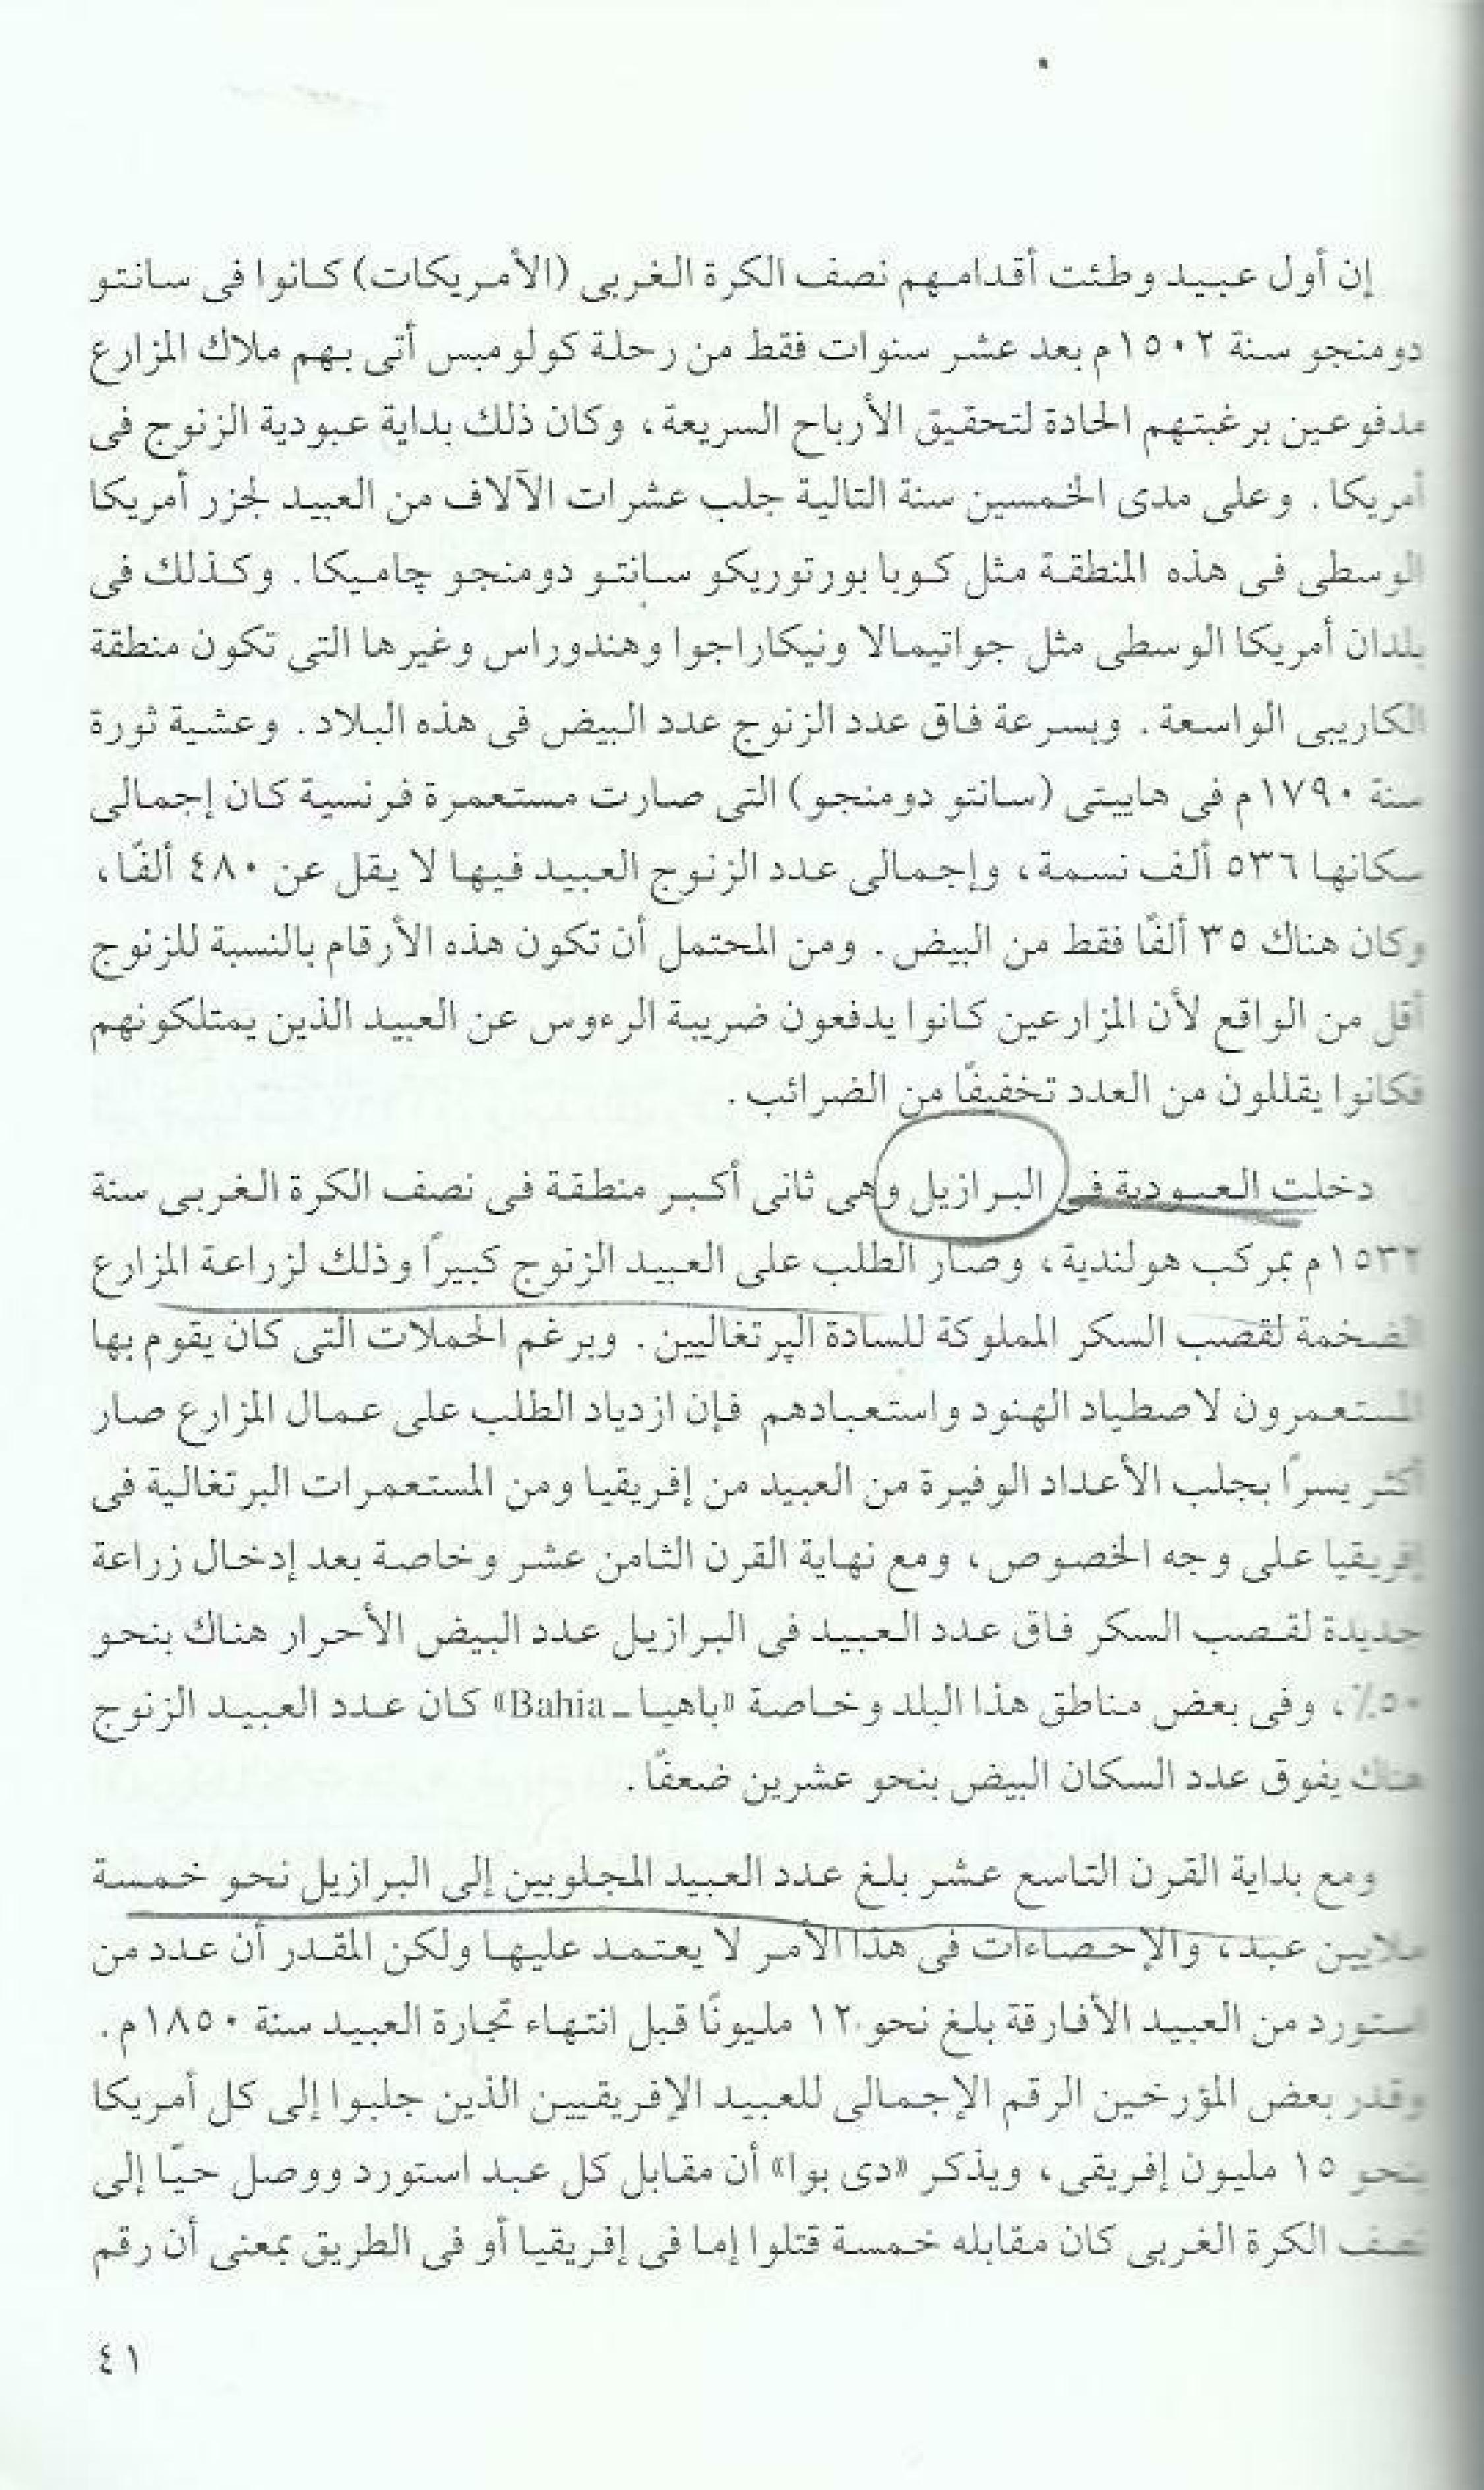 إن أول عبيد وطئت أقدامهم نصف الكرة الغربى (الأمريكات) كانوا فى سانتو
دومنجو سنة ١٥٠٢م بعد عشر سنوات فقط من رحلة كولومبس أتى بهم ملاك المزارع
مدفوعين برغبتهم الحادة لتحقيق الأرباح السريعة، وكان ذلك بداية عبودية الزنوج فى
أمريكا. وعلى مدى الخمسين سنة التالية جلب عشرات الآلاف من العبيد لجزر أمريكا
الوسطى فى هذه المنطقة مثل كوبا بورتوريكو سانتو دومنجو چاميكا. وكذلك فى
بلدان أمريكا الوسطى مثل جواتيمالا ونيكاراجوا وهندوراس وغيرها التى تكون منطقة
الكاريبى الواسعة. وبسرعة فاق عدد الزنوج عدد البيض فى هذه البلاد. وعشية ثورة
سنة ١٧٩٠م فى هاييتى (سانتو دومنجو) التى صارت مستعمرة فرنسية كان إجمالى
سكانها ٥٣٦ ألف نسمة، وإجمالى عدد الزنوج العبيد فيها لا يقل عن ٤٨٠ ألفًا،
وكان هناك ٣٥ ألفًا فقط من البيض. ومن المحتمل أن تكون هذه الأرقام بالنسبة للزنوج
أقل من الواقع لأن المزارعين كانوا يدفعون ضريبة الرءوس عن العبيد الذين يمتلكونهم
فكانوا يقللون من العدد تخفيفًا من الضرائب.
دخلت العبودية فى البرازيل وهى ثانى أكبر منطقة فى نصف الكرة الغربى سنة
١٥٣٢م بمركب هولندية، وصار الطلب على العبيد الزنوج كبيرًا وذلك لزراعة المزارع
الضخمة لقصب السكر المملوكة للسادة الپرتغاليين. وبرغم الحملات التى كان يقوم بها
المستعمرون لاصطياد الهنود واستعبادهم فإن ازدياد الطلب على عمال المزارع صار
أكثر يسرًا بجلب الأعداد الوفيرة من العبيد من إفريقيا ومن المستعمرات البرتغالية فى
إفريقيا على وجه الخصوص، ومع نهاية القرن الثامن عشر وخاصة بعد إدخال زراعة
جديدة لقصب السكر فاق عدد العبيد فى البرازيل عدد البيض الأحرار هناك بنحو
٥٠٪، وفى بعض مناطق هذا البلد وخاصة «باهيا ـ Bahia» كان عدد العبيد الزنوج
هناك يفوق عدد السكان البيض بنحو عشرين ضعفًا.
ومع بداية القرن التاسع عشر بلغ عدد العبيد المجلوبين إلى البرازيل نحو خمسة
ملايين عبد، والإحصاءات فى هذا الأمر لا يعتمد عليها ولكن المقدر أن عدد من
استورد من العبيد الأفارقة بلغ نحو ١٢ مليونًا قبل انتهاء تجارة العبيد سنة ١٨٥٠م.
وقدر بعض المؤرخين الرقم الإجمالى للعبيد الإفريقيين الذين جلبوا إلى كل أمريكا
بنحو ١٥ مليون إفريقى، ويذكر «دى بوا» أن مقابل كل عبد استورد ووصل حيًا إلى
نصف الكرة الغربى كان مقابله خمسة قتلوا إما فى إفريقيا أو فى الطريق بمعنى أن رقم
٤١